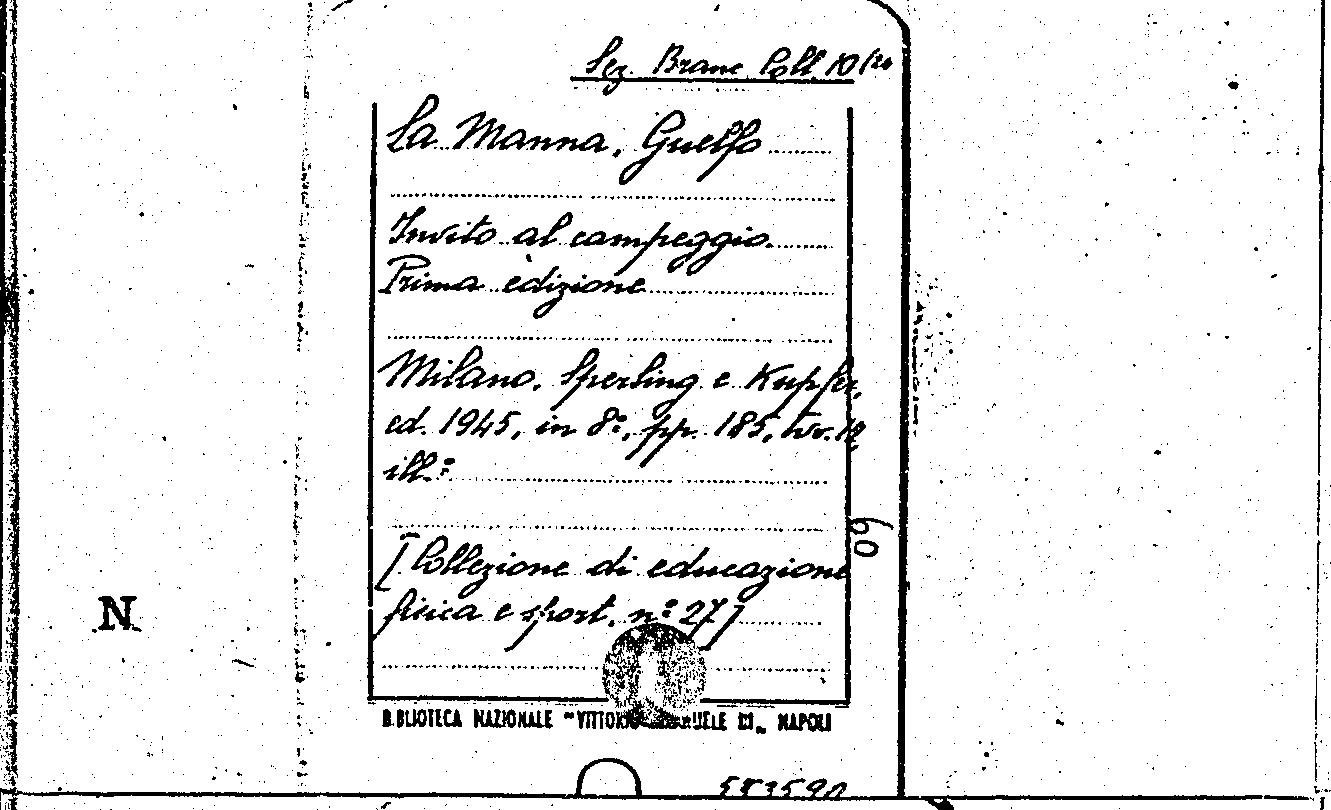 Sez. Branc. Coll. 10/20
La Manna, Guelfo
Invito al campeggio.
Prima edizione
Milano, Sperling e Kupfer,
ed. 1945, in 8º, pp. 185, tvv. 12,
ill.º
[Collezione di educazione
fisica e sport, nº 27]
60
N
BIBLIOTECA NAZIONALE "VITTORIO EMANUELE III" NAPOLI